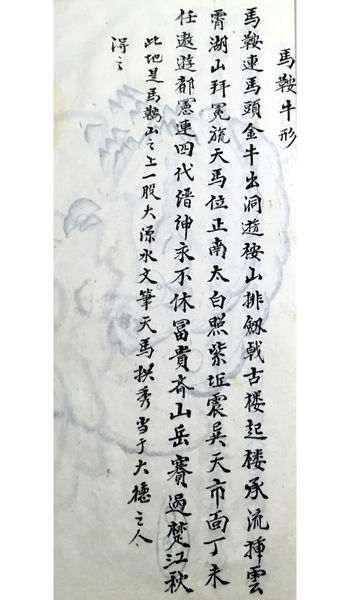 馬鞍牛形
馬鞍連馬頭金牛出洞遊桉山排劔戟古楼起楼承流揮雲
霄湖山拜冕旒天馬位正南太白照紫垣震吴天市面丁未
任遨遊都憲連四代缙绅永不休冨貴齐山岳賽過楚江秋
此地是馬鞍山之上一股大源水文筆天馬拱秀当于大德之人
得之